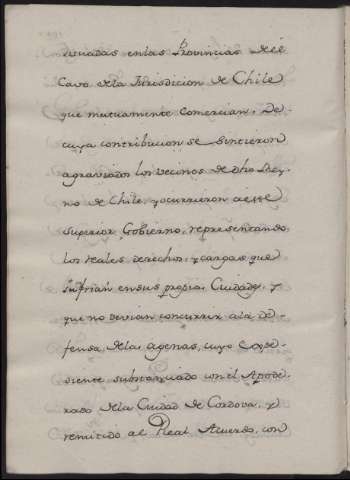 cuiadas en las Provincias de el
Cavo de la Jurisdicion de Chile
que mutuamente comercian. De
cuya contribucion se sintieron
agraviados los vecinos de dho Rey-
no de Chile, y ocurrieron a esse
Superior Gobierno, representando
los reales derechos, y cargas que
sufrian en sus propias Ciudades, y
que no devian concurrir a la de-
fensa de las agenas, cuyo Expe-
diente substanciado con el Apode-
rado de la Ciudad de Cordova, y
remitido al Real Acuerdo, con